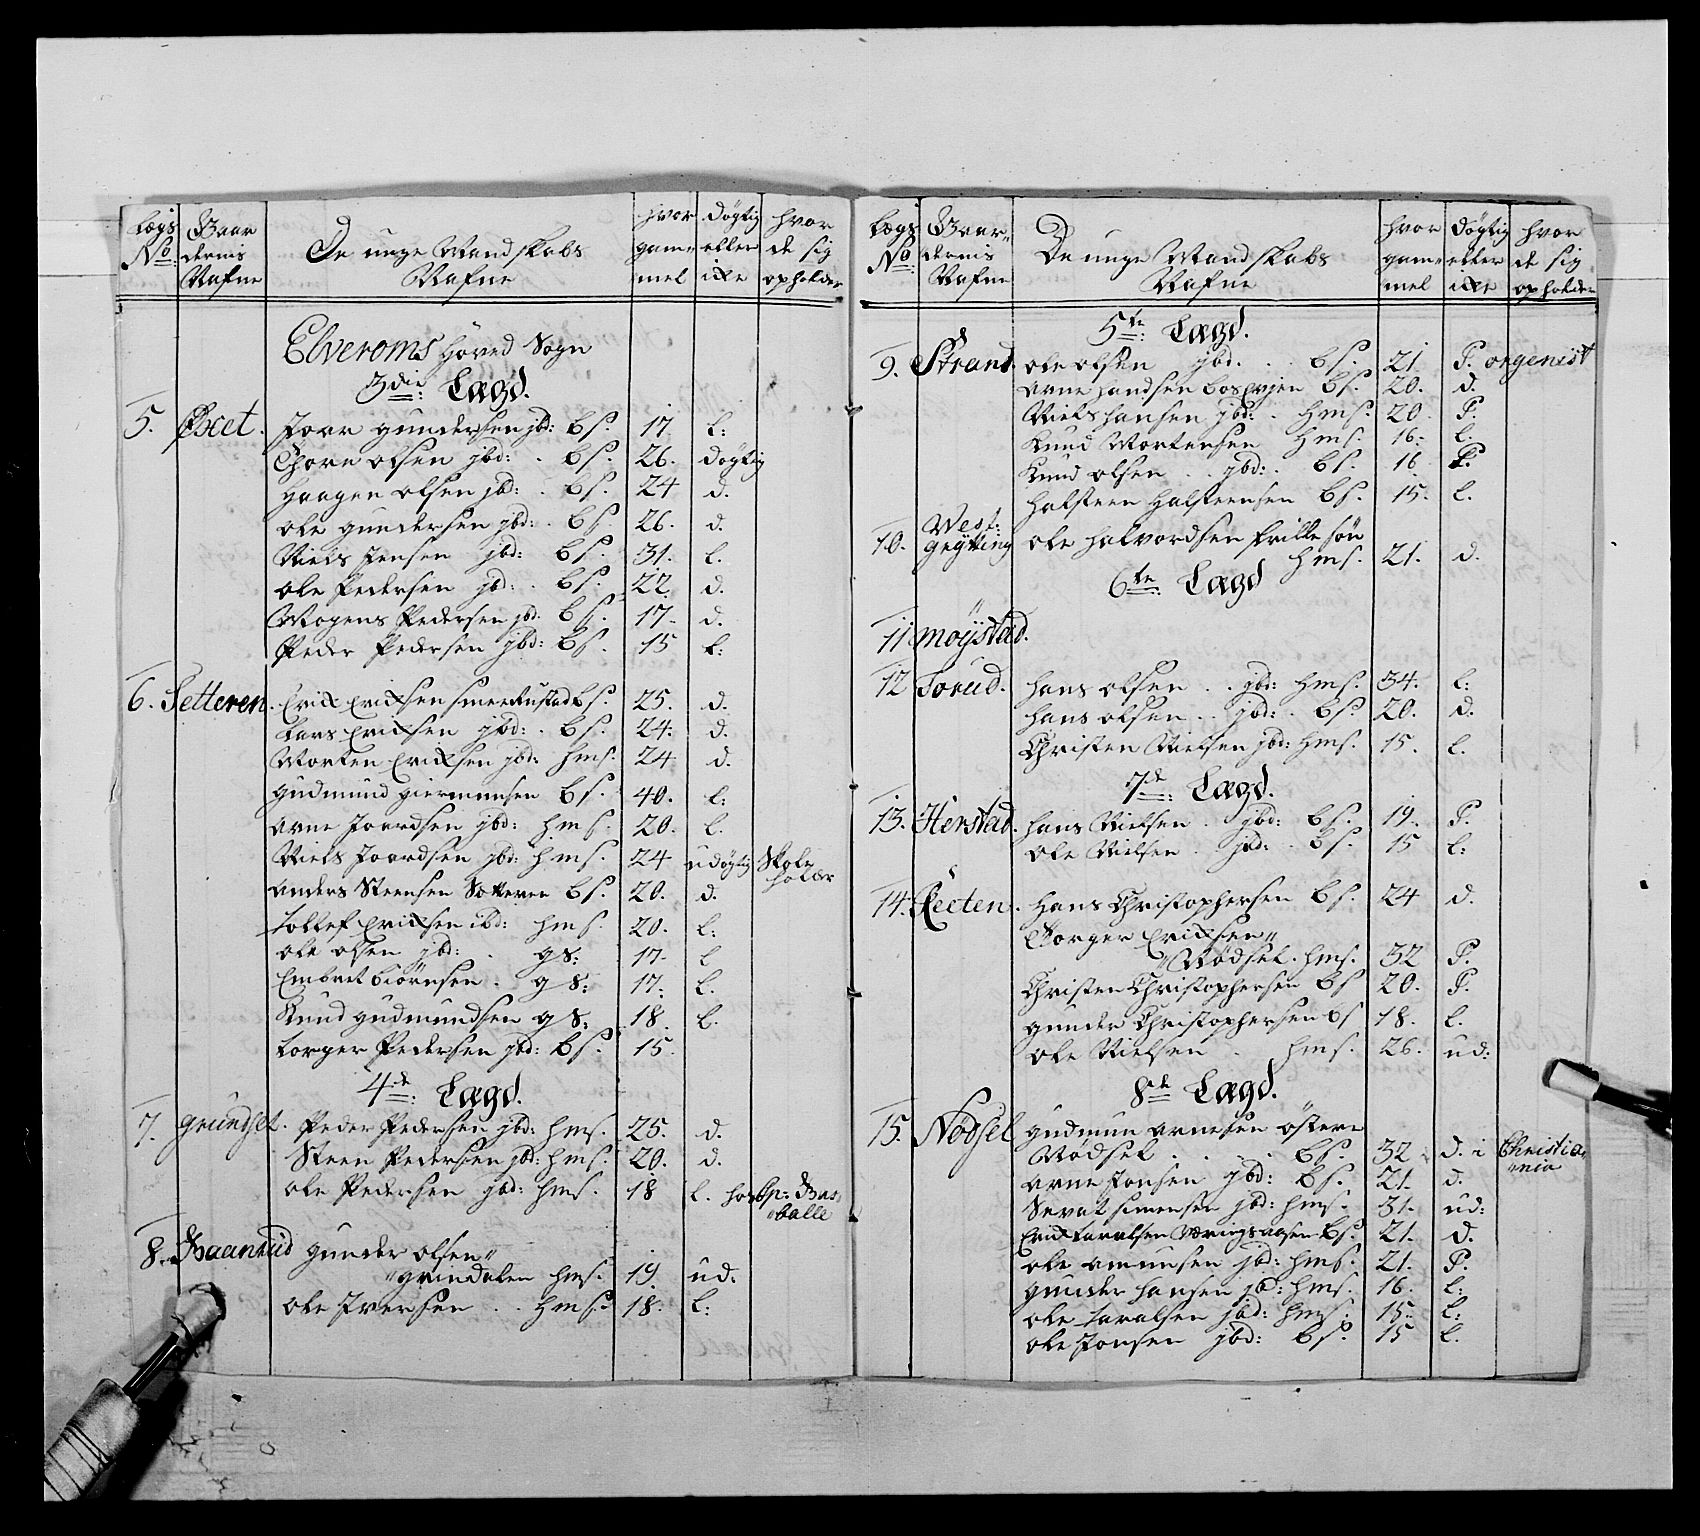 Lægs No: | Gaardernis Nafne | De unge Mandskabs Nafne | hvor gammel | døgtig eller ikke | hvor de sig opholder
Elveroms Hoved Sogn
3die: Lægd.
5. Øxet. Joar gundersen jbd: bs. 17 l:
Thore olsen jbd: . bs. 26. døgtig
Haagen olsen jbd: . bs. 24 d.
ole gundersen jbd: . bs. 26. d.
Niels Jensen jbd: bs. 31. l.
ole Pedersen jbd: . bs. 22. d.
Mogens Pedersen jbd: bs. 17. d.
Peder Pedersen jbd: bs. 15 l:
6. Setteren. Erik Eriksen smeekustad bs. 25. d.
Lars Eriksen jbd: . bs. 24: d.
Morten Eriksen jbd: hms: 24 d.
gudmund giermunsen bs. 40. l:
arne Joardsen jbd: hms. 20. l.
Niels Joardsen jbd: hms. 24 udøgtig Skole holder
anders Steensen Setteren bs. 20. d.
tollef Eriksen ibd: hms. 20. l:
ole olsen jbd: . gs: 17. l
Embret biörnsen . gs: 17. l.
Knud gudmundsen gs: 18. l.
torger Pedersen jbd: bs. 15.
4de: Lægd.
7. grundset. Peder Pedersen jbd: hms. 25. d.
Steen Pedersen jbd: hms. 20. d.
ole Pedersen jbd: hms. 18 l. hos Cp: Bas
balle
8. gunder olsen
grindalen hms. 19. ud:
ole Iversen . . hms: 18. l:
Lægs No: | Gaardernis Nafne | De unge Mandskabs Nafne | hvor gammel | døgtig eller ikke | hvor de sig opholder
5te: Lægd.
9. Strand. ole olsen jbd. . . bs. 21. P. orgenist
arne handsen bs. 20. d.
Niels hansen jbd: . hms. 20. P.
Knud Mortensen hms. 16: l.
Knud olsen . . jbd: . bs. 16 P.
halsteen Halsteensen bs. 15. l.
10. West: grytting ole halvordsen frille søn
hms. 21. d.
6te: Lægd
11 moystad.
12 Torud. hans olsen . . jbd: hms. 34. l:
hans olsen . . jbd: . bs. 20. d.
Christen Nielsen jbd: hms. 15. l.
7de: Lægd.
13. Herstad. hans Nielsen . jbd: bs. 19. P.
ole Nielsen . jbd: . bs. 15 l:
14. Hans Christophersen bs. 24 d.
Torger Eriksen
Nødsel . hms. 32 P.
Christen Christophersen bs 20. P.
gunder Christophersen bs 18. l.
ole Nielsen . hms. 26. ud:
8de: Lægd.
15. Nödsel gudmun arnesen östere
Nödsel . . . bs. 32 d. i Christia
nia
arne Jonsen jbd: bs. 21. d.
Sevat simensen jbd: hms. 31. ud:
Erik taralsen Næringsaasen bs. 21. d.
ole amunsen jbd: hms. 21. P.
gunder hansen jbd: hms. 16. l:
ole taralsen jbd: hms. 15: l:
ole Jonsen jbd: bs. 15 l.